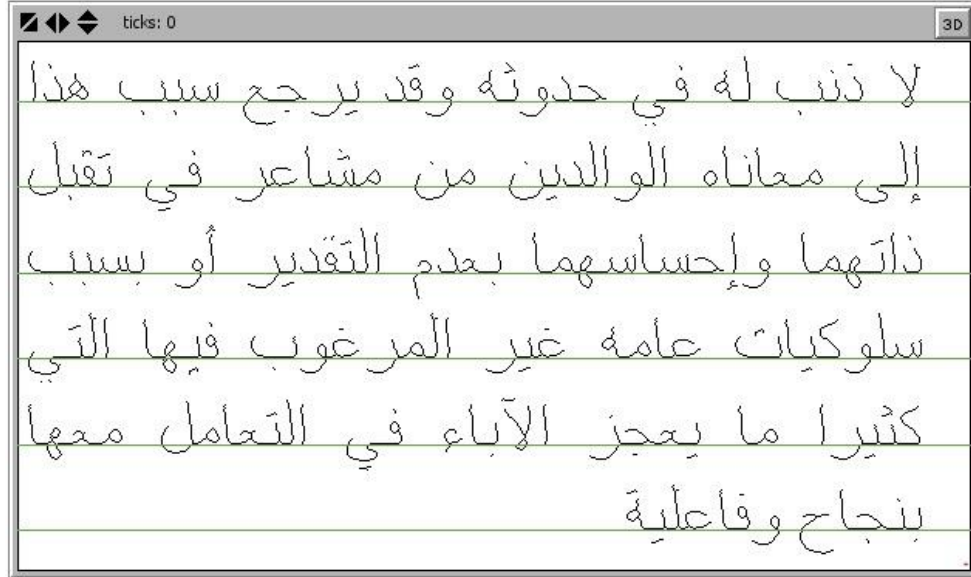 ticks: 0
3D
لا ذنب له في حدوثه وقد يرجع سبب هذا
إلى معاناه الوالدين من مشاعر في تقبل
ذاتهما وإحساسهما بعدم التقدير أو بسبب
سلوكيات عامه غير المرغوب فيها التي
كثيرا ما يعجز الآباء في التعامل معها
بنجاح وفاعلية